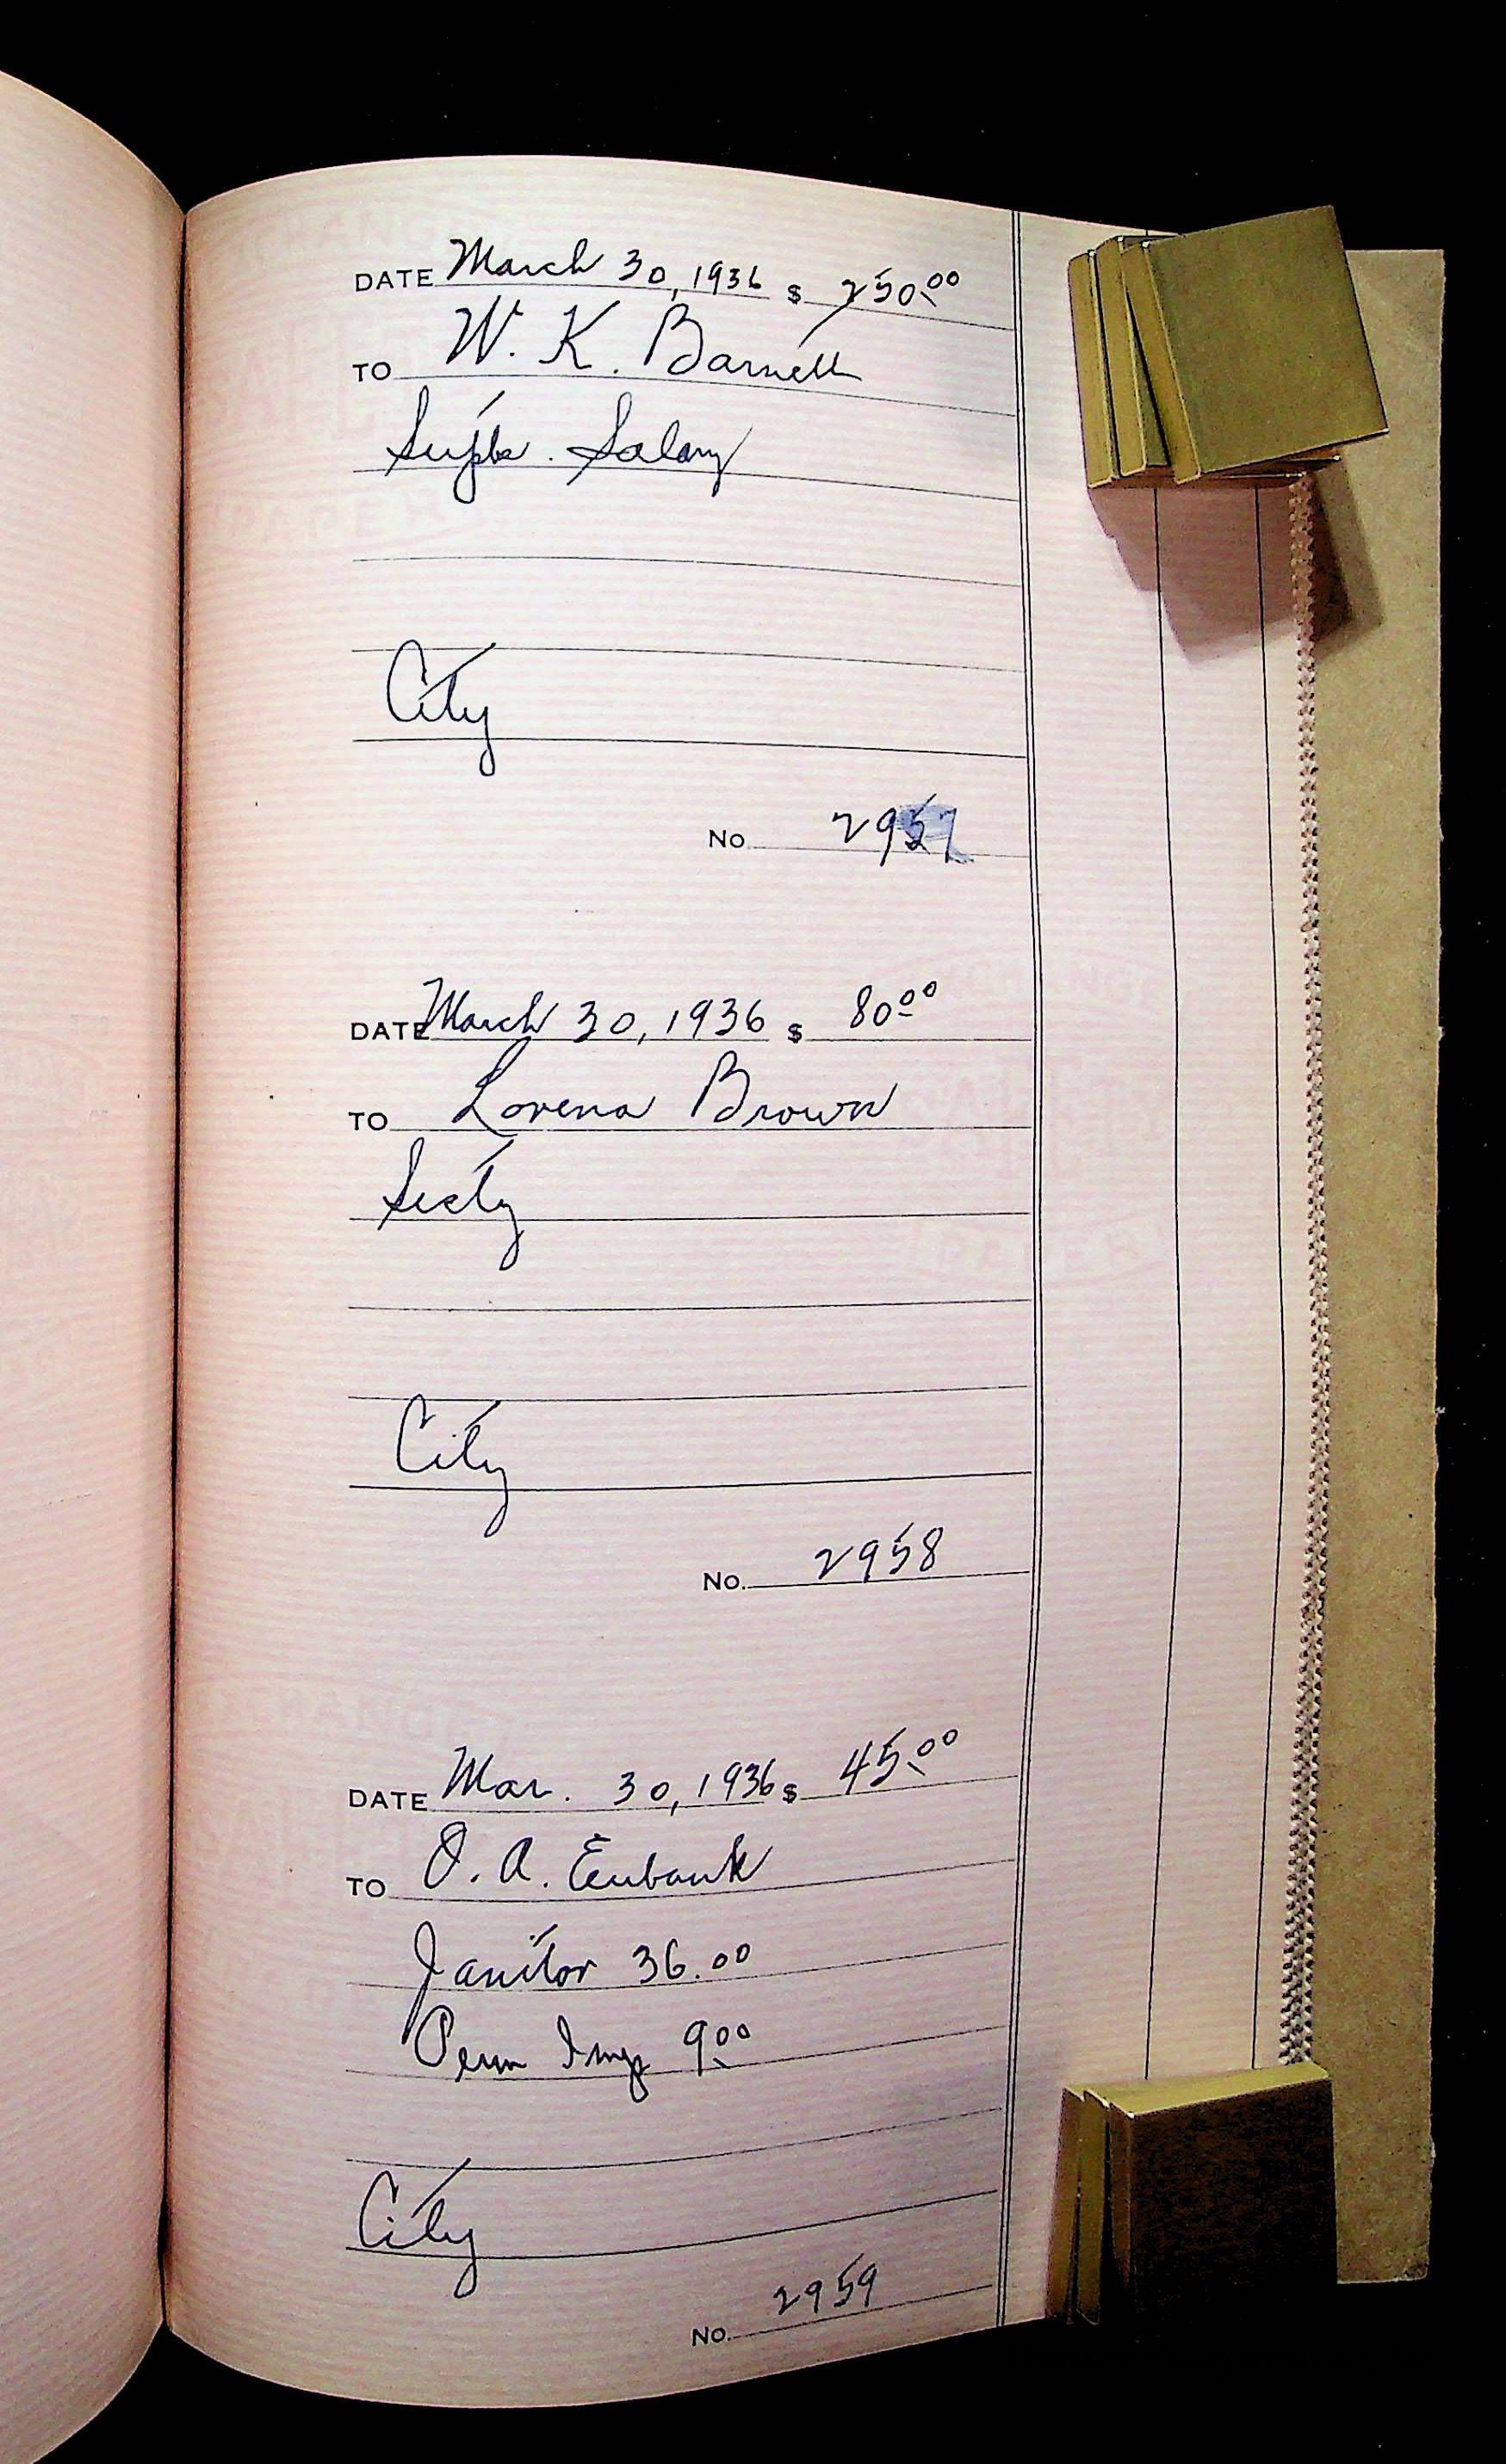 DATE March 30, 1936 $ 250.00
TO W. K. Barnett
Supt. Salary
City
No. 2957
DATE March 30, 1936 $ 80.00
TO Lorena Brown
Secty
City
No. 2958
DATE Mar. 30, 1936 $ 45.00
TO O. A. Eubank
Janitor 36.00
Perm Imp 9.00
City
No. 2959